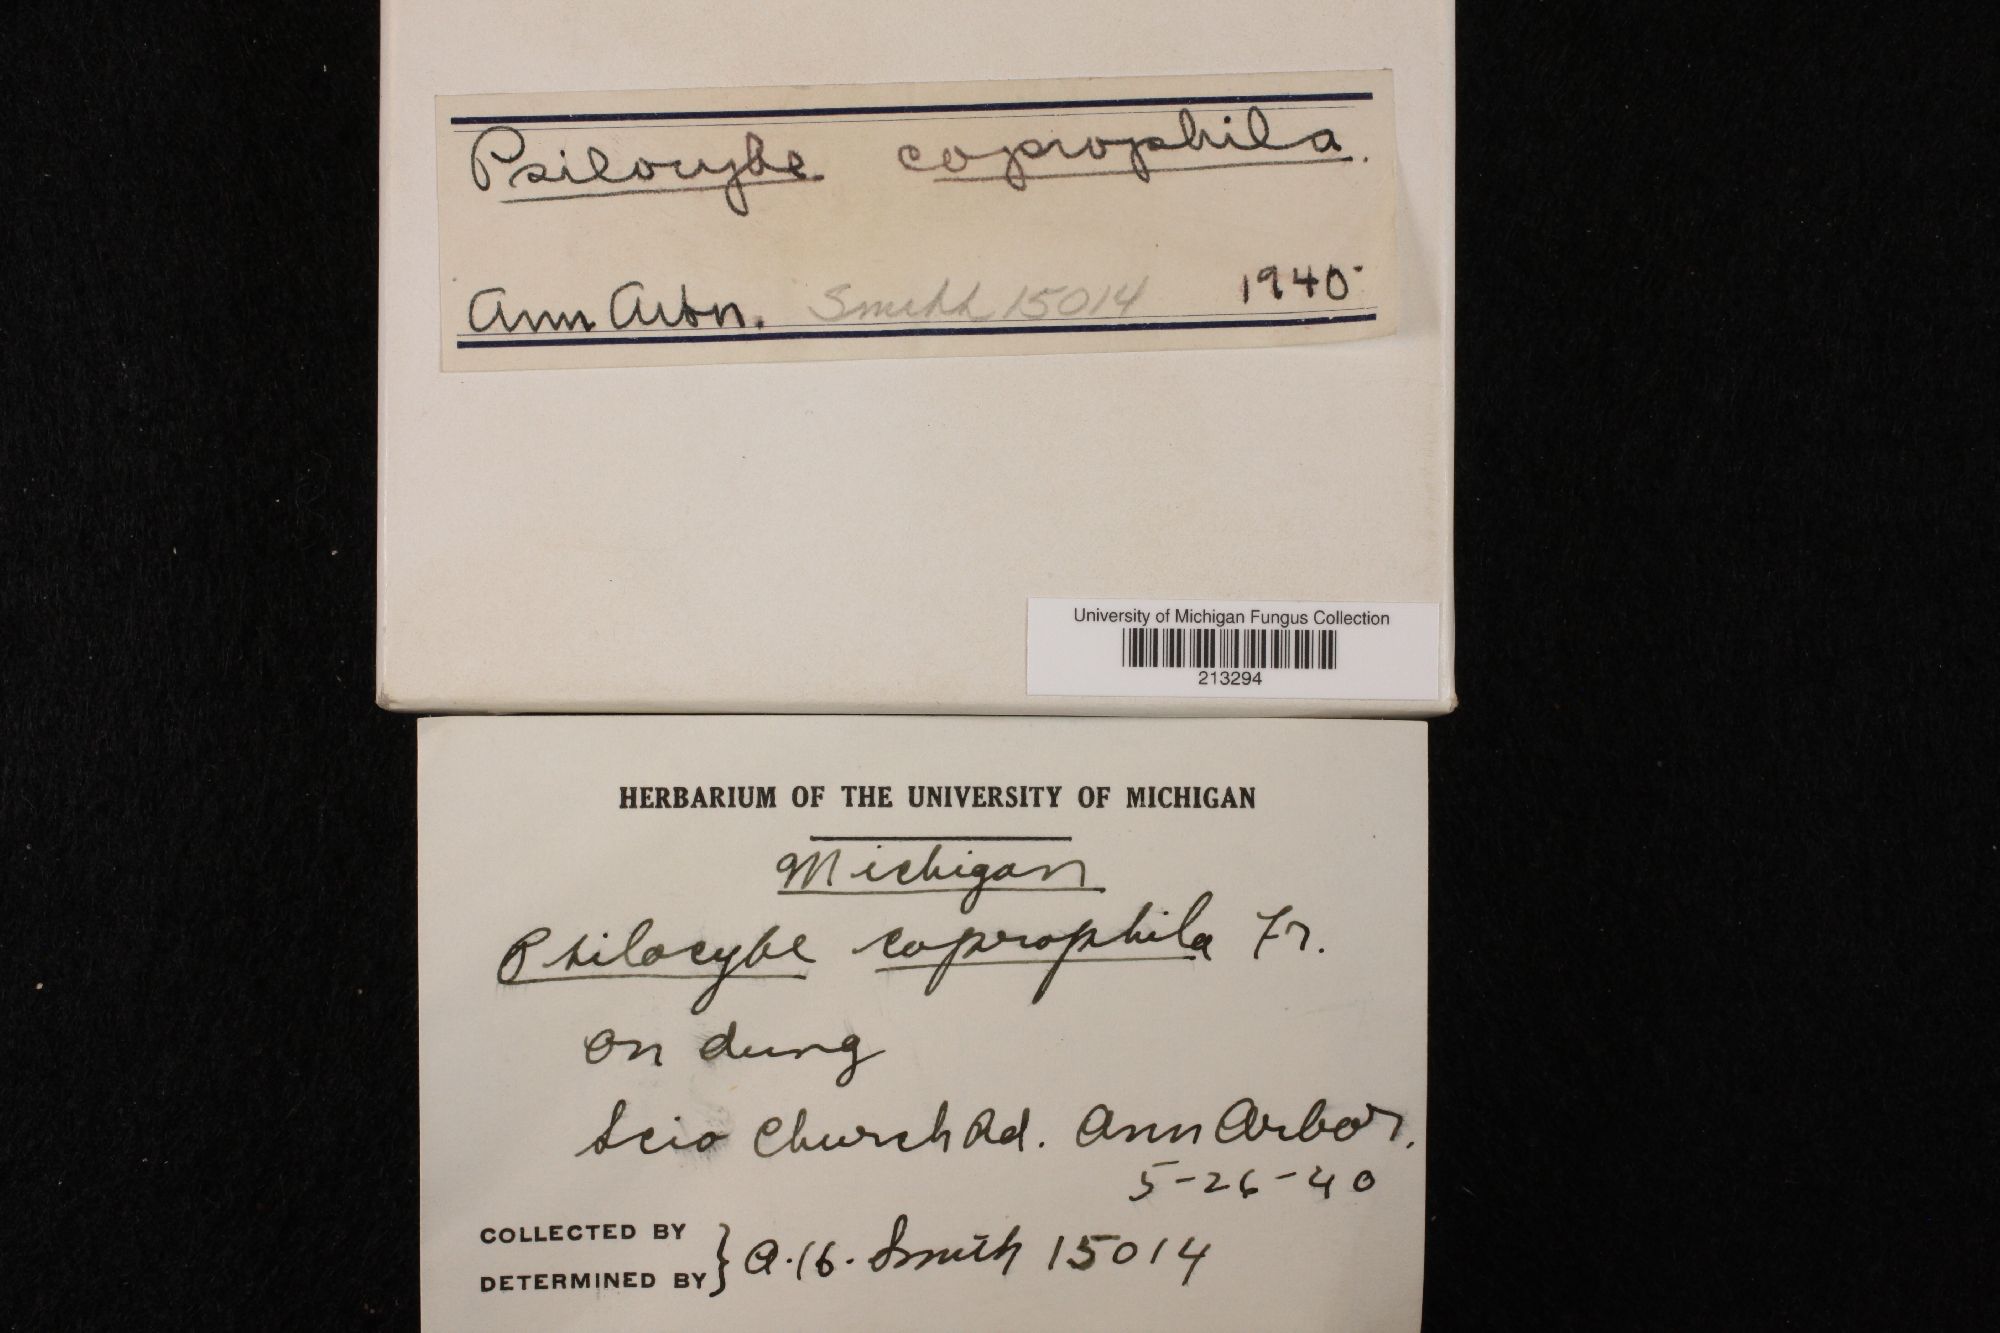 Psilocybe coprophila.
Ann Arbor. Smith 15014 1940
University of Michigan Fungus Collection
213294
HERBARIUM OF THE UNIVERSITY OF MICHIGAN
Michigan
Psilocybe coprophila Fr.
on dung
Scio Church Rd. Ann Arbor.
5-26-40
COLLECTED BY
DETERMINED BY } A.H. Smith 15014